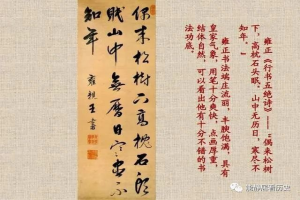 雍正《行书五绝诗》：“偶来松树
下，高枕石头眠。山中无历日，寒尽不
知年。”
雍正书法端庄流丽，丰腴饱满，具有
皇家气象，用笔十分爽快，点画厚重，
结体自然，可以看出他有十分不错的书
法功底。
偶来松樹下高枕石頭
眠山中無曆日寒盡不
知年
雍親王書